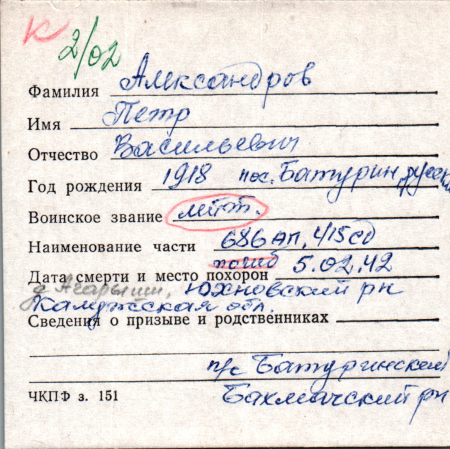 К 2/02
Фамилия Александров
Имя Петр
Отчество Васильевич
Год рождения 1918 пос. Батурин, русск
Воинское звание
Наименование части 686 АП, 415 сд
погиб 5.02.42
Дата смерти и место похорон
Юхновский рн
Калужская обл.
Сведения о призыве и родственниках
п/с Батуринский
ЧКПФ з. 151 Бахмачский рн